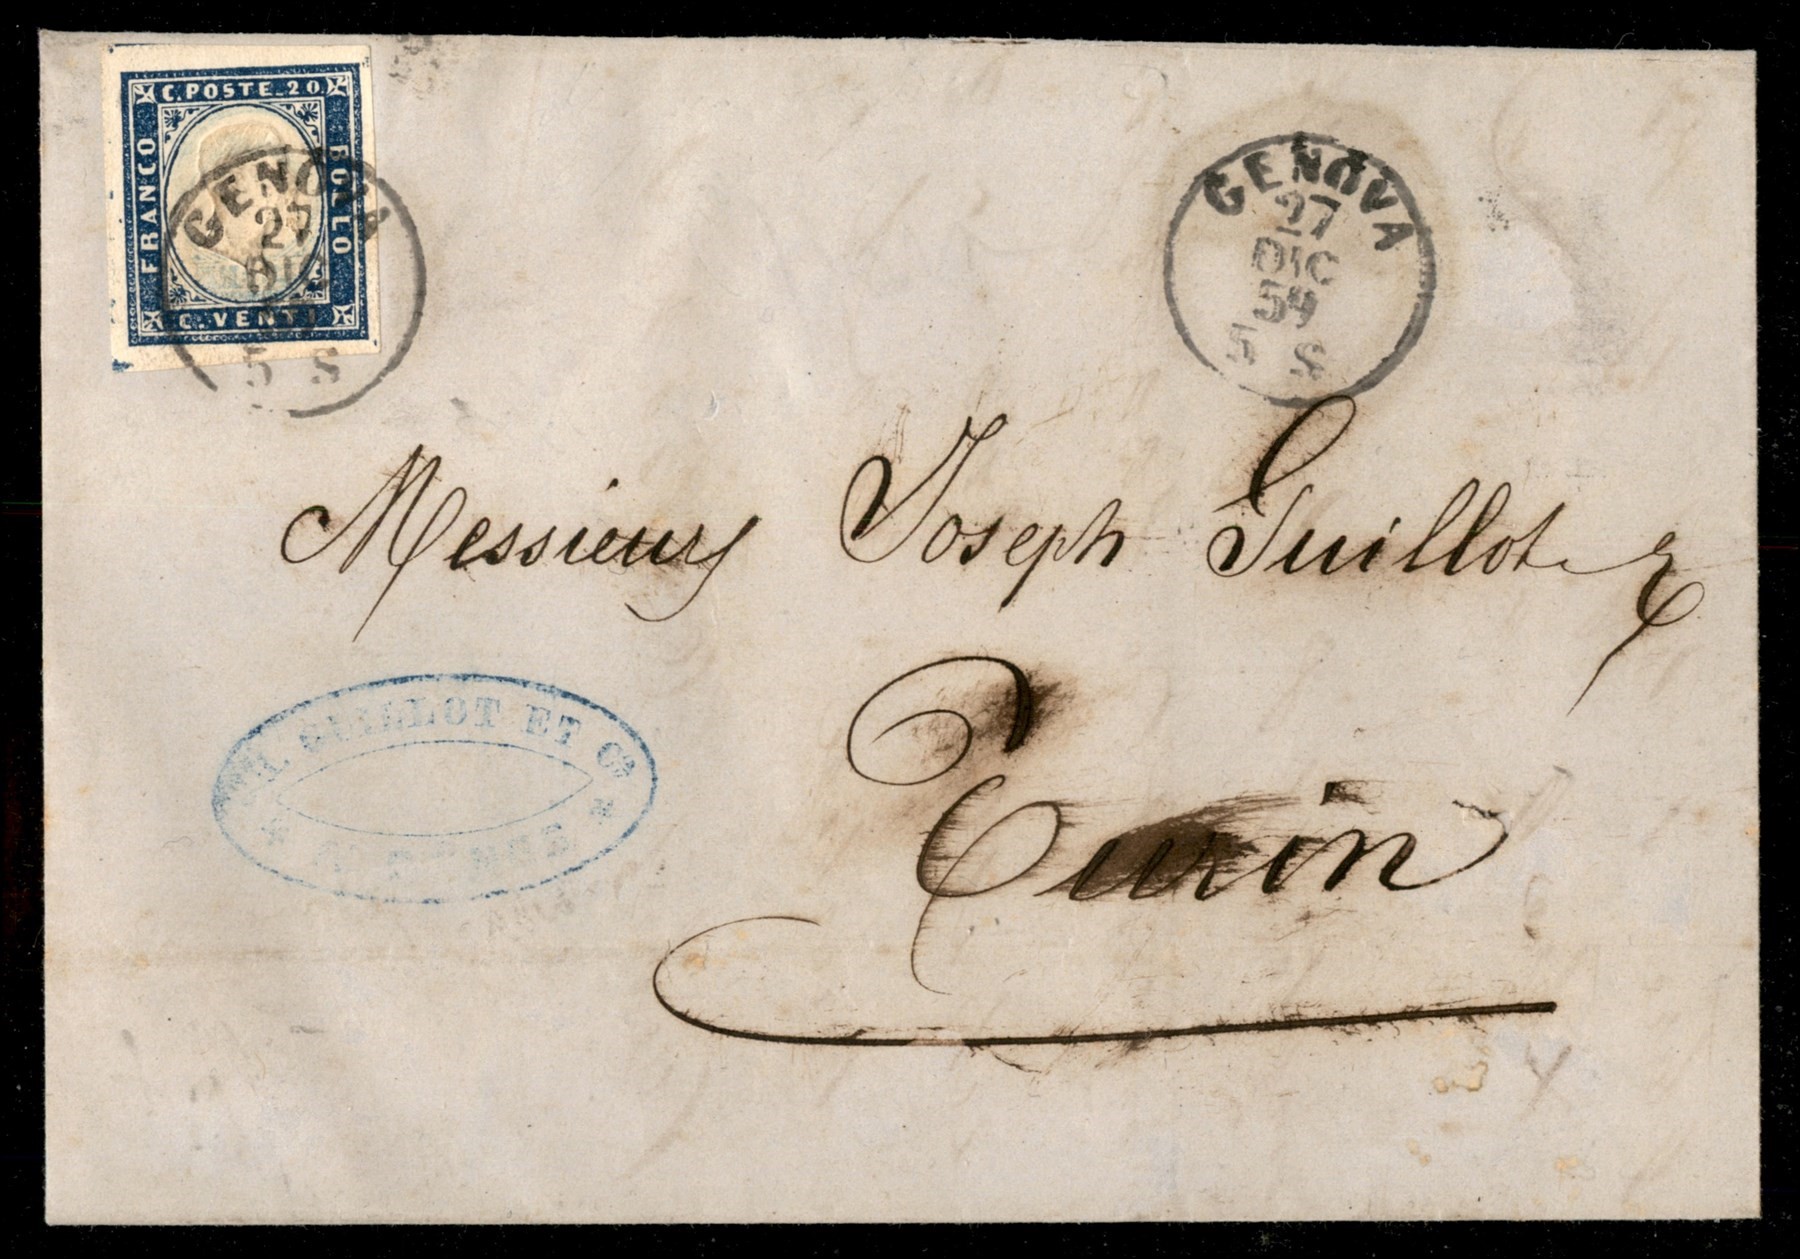 C. POSTE. 20.
FRANCO
BOLLO
C. VENTI
GENOVA
27
5 S
GENOVA
27
DIC
59
5 S
Messieurs Joseph Guillot &
Turin
GUILLOT ET Cie